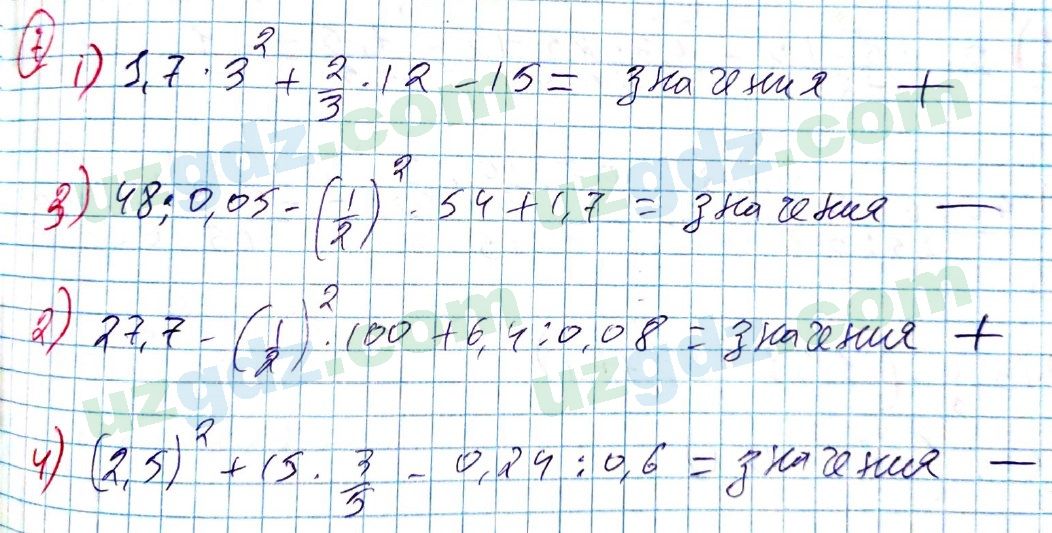 7 1) 1,7 · 3² + 2/3 · 12 - 15 = значения +
3) 48 : 0,05 - (1/2)² · 54 + 1,7 = значения —
2) 27,7 - (1/2)² · 100 + 6,4 : 0,08 = значения +
4) (2,5)² + 15 · 3/5 - 0,24 : 0,6 = значения —
uzgdz.com
uzgdz.com
uzgdz.com
uzgdz.com